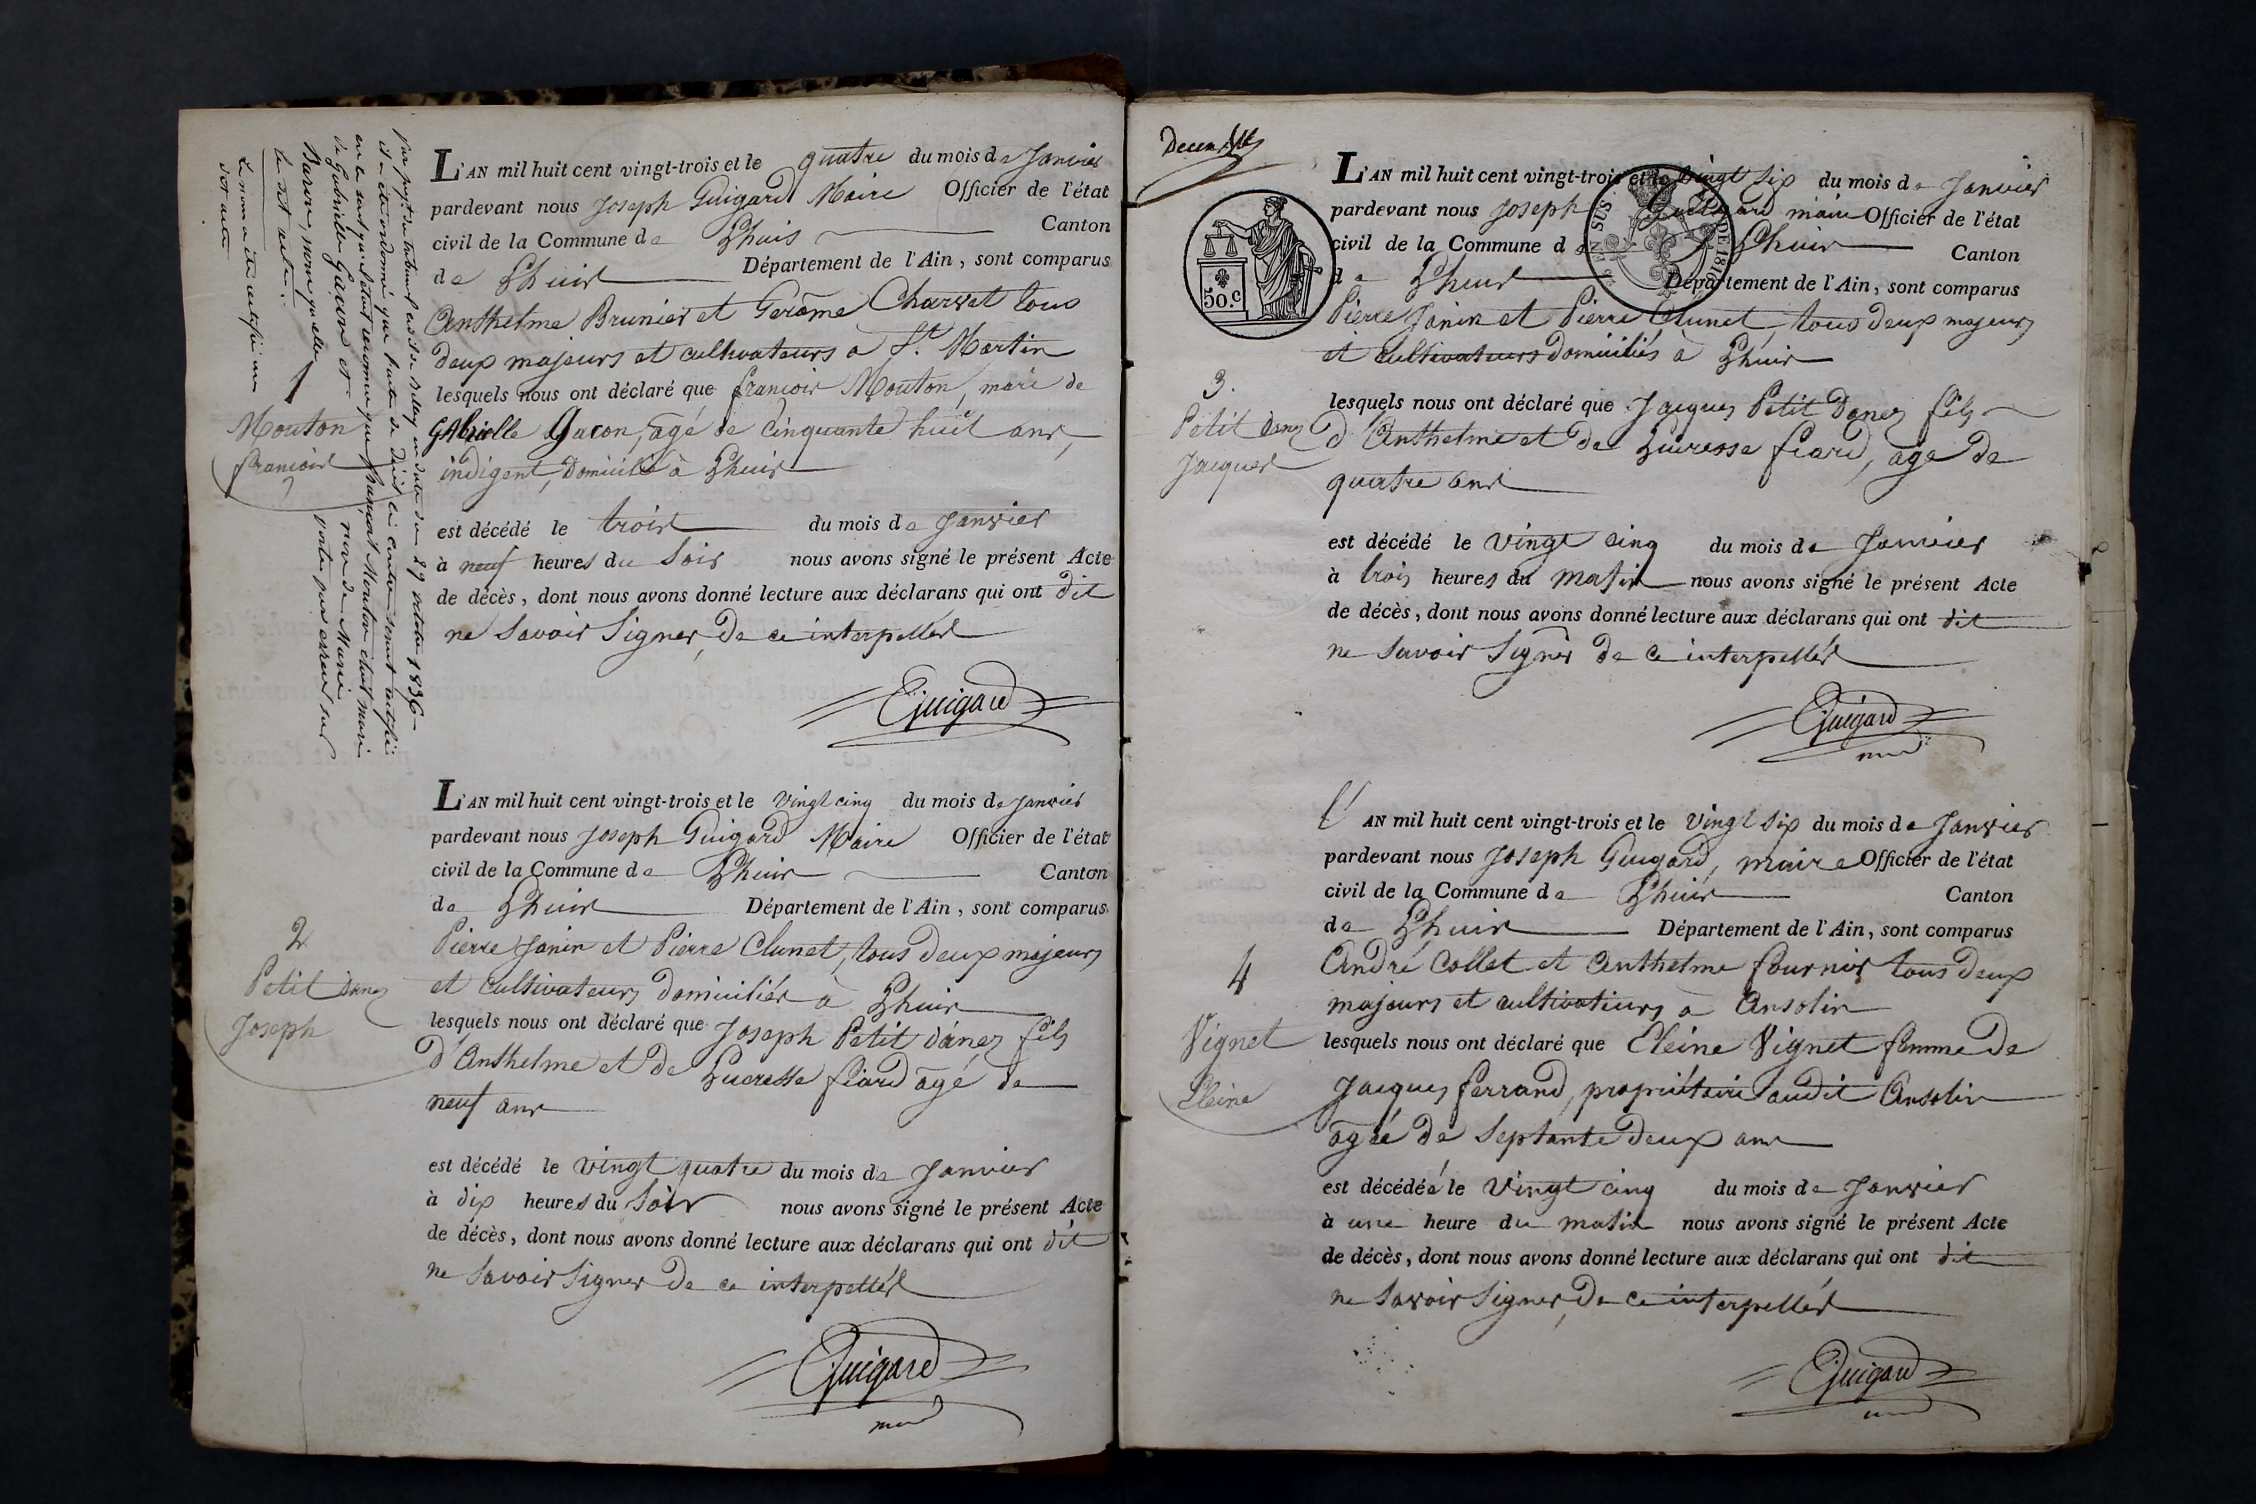 Par jugement du tribunal civil de Belley en date du 29 octobre 1836
il a été ordonné que l'acte de décès ci contre serait rectifié
en ce sens que François Mouton était mari
de Gabrielle Gacon et non de Marie
Baron, nom qu'elle porte par erreur sur
le dit acte.
Le nom a été rectifié sur
cet acte
1
Mouton
françois
L'AN mil huit cent vingt-trois et le quatre du mois de Janvier
pardevant nous Joseph Guigard Maire Officier de l'état
civil de la Commune de Lhuis Canton
de Lhuis Département de l'Ain, sont comparus
Anthelme Brunier et Gerôme Charvet tous
deux majeurs et cultivateurs a St. Martin
lesquels nous ont déclaré que françois Mouton, mari de
GAbrielle Gacon, agé de Cinquante huit ans,
indigent, Domicilié à Lhuis
est décédé le trois du mois de Janvier
à neuf heures du Soir nous avons signé le présent Acte
de décès, dont nous avons donné lecture aux déclarans qui ont dit
ne Savoir Signer, De ce interpellés
Guigard
2
Petit Danez
Joseph
L'AN mil huit cent vingt-trois et le vingt cinq du mois de Janvier
pardevant nous Joseph Guigard Maire Officier de l'état
civil de la Commune de Lhuis Canton
de Lhuis Département de l'Ain, sont comparus
Pierre Janin et Pierre Clunet, tous deux majeurs
et Cultivateurs domiciliés à Lhuis
lesquels nous ont déclaré que Joseph Petit dánez fils
d'Anthelme et de Lucresse fiard âgé de
neuf ans
est décédé le vingt quatre du mois de Janvier
à dix heures du Soir nous avons signé le présent Acte
de décès, dont nous avons donné lecture aux déclarans qui ont dit
ne Savoir Signer De ce interpellés
Guigard
50.c
3.
Petit Danez
Jacques
L'AN mil huit cent vingt-trois et le vingt Six du mois de Janvier
pardevant nous Joseph Guigard maire Officier de l'état
civil de la Commune de Lhuis Canton
de Lhuis Département de l'Ain, sont comparus
Pierre Janin et Pierre Clunet, tous deux majeurs
et Cultivateurs Domiciliés à Lhuis
lesquels nous ont déclaré que Jacques Petit Danez fils
d'Anthelme et de Lucresse fiard, age de
quatre ans
est décédé le vingt cinq du mois de Janvier
à trois heures du matin nous avons signé le présent Acte
de décès, dont nous avons donné lecture aux déclarans qui ont dit
ne Savoir Signer De ce interpellés
Guigard
4
Vignet
Cleine
L'AN mil huit cent vingt-trois et le vingt Six du mois de Janvier
pardevant nous Joseph Guigard, maire Officier de l'état
civil de la Commune de Lhuis Canton
de Lhuis Département de l'Ain, sont comparus
André Collet et Anthelme fournier tous deux
majeurs et cultivateurs a Ansolin
lesquels nous ont déclaré que Cleine Vignet femme de
Jacques ferrand, propriétaire audit Ansolin
agée de Septante deux ans
est décédée le vingt cinq du mois de Janvier
à une heure du matin nous avons signé le présent Acte
de décès, dont nous avons donné lecture aux déclarans qui ont dit
ne Savoir Signer, De ce interpellés
Guigard